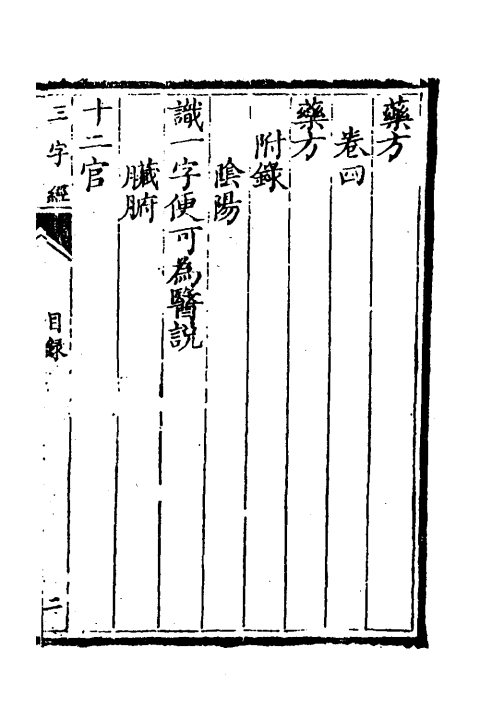 藥方
卷四
藥方
附錄
陰陽
識一字便可為醫說
臟腑
十二官
三字經
目録
二